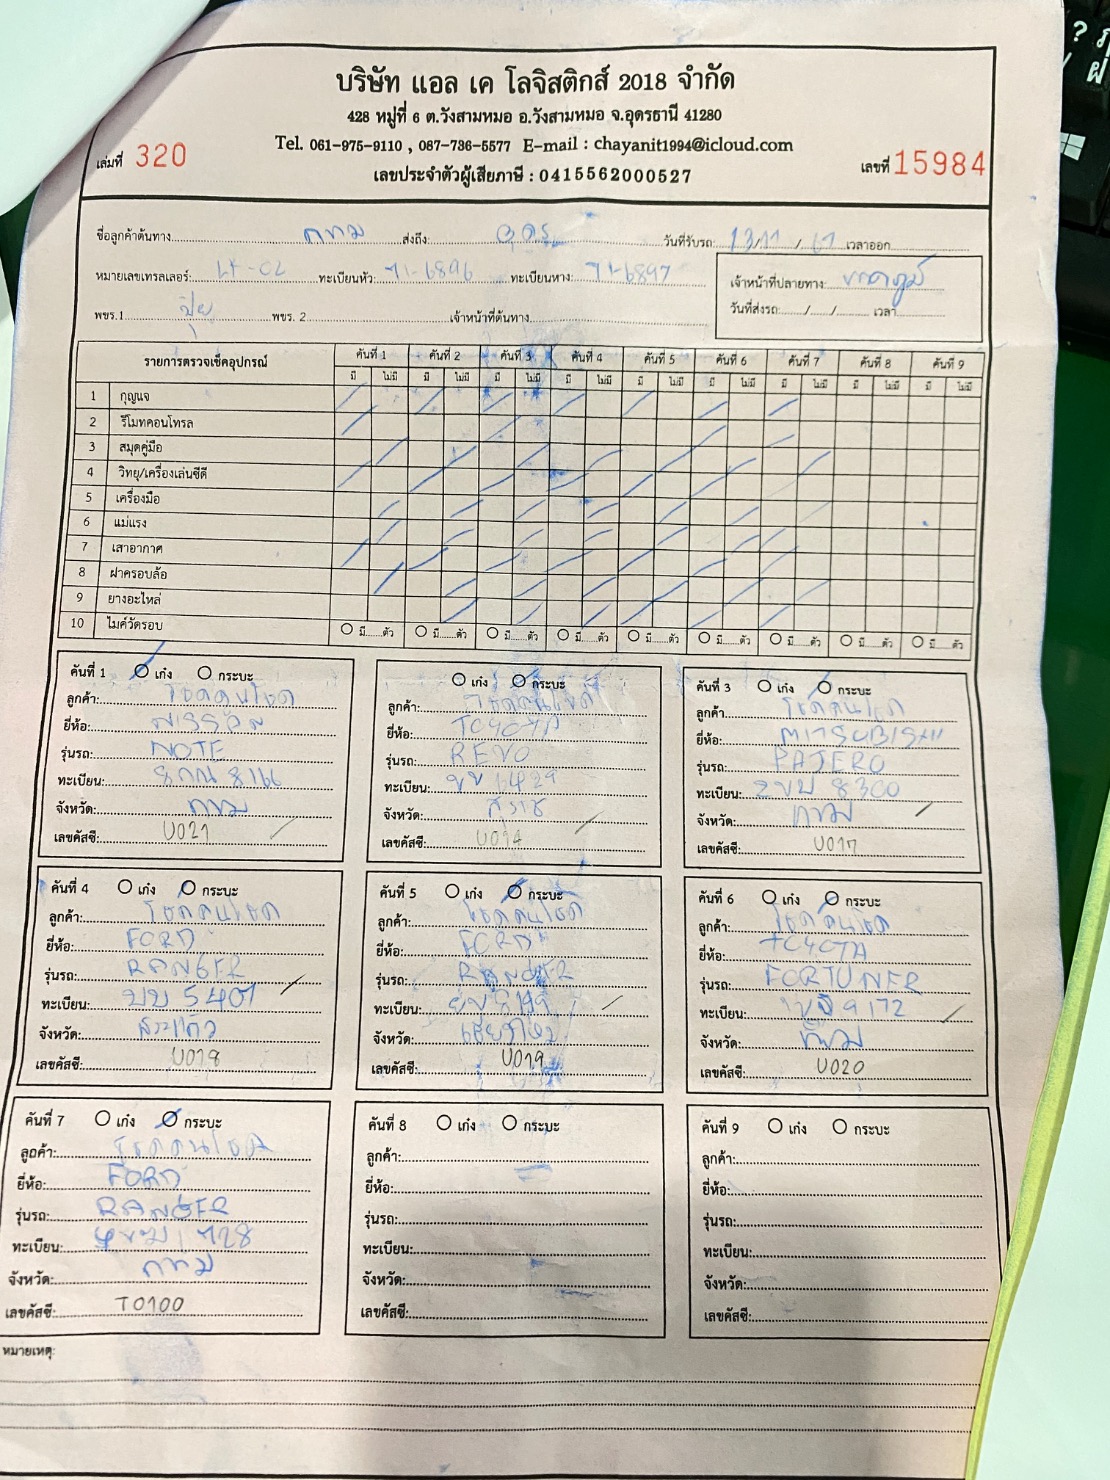 บริษัท แอล เค โลจิสติกส์ 2018 จำกัด
428 หมู่ที่ 6 ต.วังสามหมอ อ.วังสามหมอ จ.อุดรธานี 41280
Tel. 061-975-9110 , 087-736-5577 E-mail : chayanit1994@icloud.com
เล่มที่ 320 เลขที่ 15984
เลขประจำตัวผู้เสียภาษี : 0415562000527
ชื่อลูกค้าต้นทาง กทม ส่งถึง อุดร วันที่รับรถ 13/11/67 เวลาออก
หมายเลขเทรลเลอร์: LK-02 ทะเบียนหัว: 71-6896 ทะเบียนหาง: 71-6897 เจ้าหน้าที่ปลายทาง:
พขร.1 ปุ๋ย พขร. 2 เจ้าหน้าที่ต้นทาง วันที่ส่งรถ: / / เวลา
รายการตรวจเช็คอุปกรณ์ คันที่ 1 คันที่ 2 คันที่ 3 คันที่ 4 คันที่ 5 คันที่ 6 คันที่ 7 คันที่ 8 คันที่ 9
มี ไม่มี มี ไม่มี มี ไม่มี มี ไม่มี มี ไม่มี มี ไม่มี มี ไม่มี มี ไม่มี มี ไม่มี
1 กุญแจ
2 รีโมทคอนโทรล
3 สมุดคู่มือ
4 วิทยุ/เครื่องเล่นซีดี
5 เครื่องมือ
6 แม่แรง
7 เสาอากาศ
8 ฝาครอบล้อ
9 ยางอะไหล่
10 ไมค์วัดรอบ มี ตัว มี ตัว มี ตัว มี ตัว มี ตัว มี ตัว มี ตัว มี ตัว มี ตัว
คันที่ 1 เก๋ง กระบะ
ลูกค้า: โชคคูนโชค
ยี่ห้อ: NISSAN
รุ่นรถ: NOTE
ทะเบียน: 8166
จังหวัด: กทม
เลขคัสซี: U021
เก๋ง กระบะ
ลูกค้า: โชคคูนโชค
ยี่ห้อ: TOYOTA
รุ่นรถ: REVO
ทะเบียน: 1429
จังหวัด:
เลขคัสซี: U014
คันที่ 3 เก๋ง กระบะ
ลูกค้า: โชคคูนโชค
ยี่ห้อ: MITSUBISHI
รุ่นรถ: PAJERO
ทะเบียน: 8300
จังหวัด: กทม
เลขคัสซี: U017
คันที่ 4 เก๋ง กระบะ
ลูกค้า: โชคคูนโชค
ยี่ห้อ: FORD
รุ่นรถ: RANGER
ทะเบียน: บบ 5401
จังหวัด: สระแก้ว
เลขคัสซี: U018
คันที่ 5 เก๋ง กระบะ
ลูกค้า: โชคคูนโชค
ยี่ห้อ: FORD
รุ่นรถ: RANGER
ทะเบียน:
จังหวัด: เชียงใหม่
เลขคัสซี: U019
คันที่ 6 เก๋ง กระบะ
ลูกค้า: โชคคูนโชค
ยี่ห้อ: TOYOTA
รุ่นรถ: FORTUNER
ทะเบียน: 9172
จังหวัด: กทม
เลขคัสซี: U020
คันที่ 7 เก๋ง กระบะ
ลูกค้า: โชคคูนโชค
ยี่ห้อ: FORD
รุ่นรถ: RANGER
ทะเบียน: 728
จังหวัด: กทม
เลขคัสซี: T0100
คันที่ 8 เก๋ง กระบะ
ลูกค้า:
ยี่ห้อ:
รุ่นรถ:
ทะเบียน:
จังหวัด:
เลขคัสซี:
คันที่ 9 เก๋ง กระบะ
ลูกค้า:
ยี่ห้อ:
รุ่นรถ:
ทะเบียน:
จังหวัด:
เลขคัสซี:
หมายเหตุ: